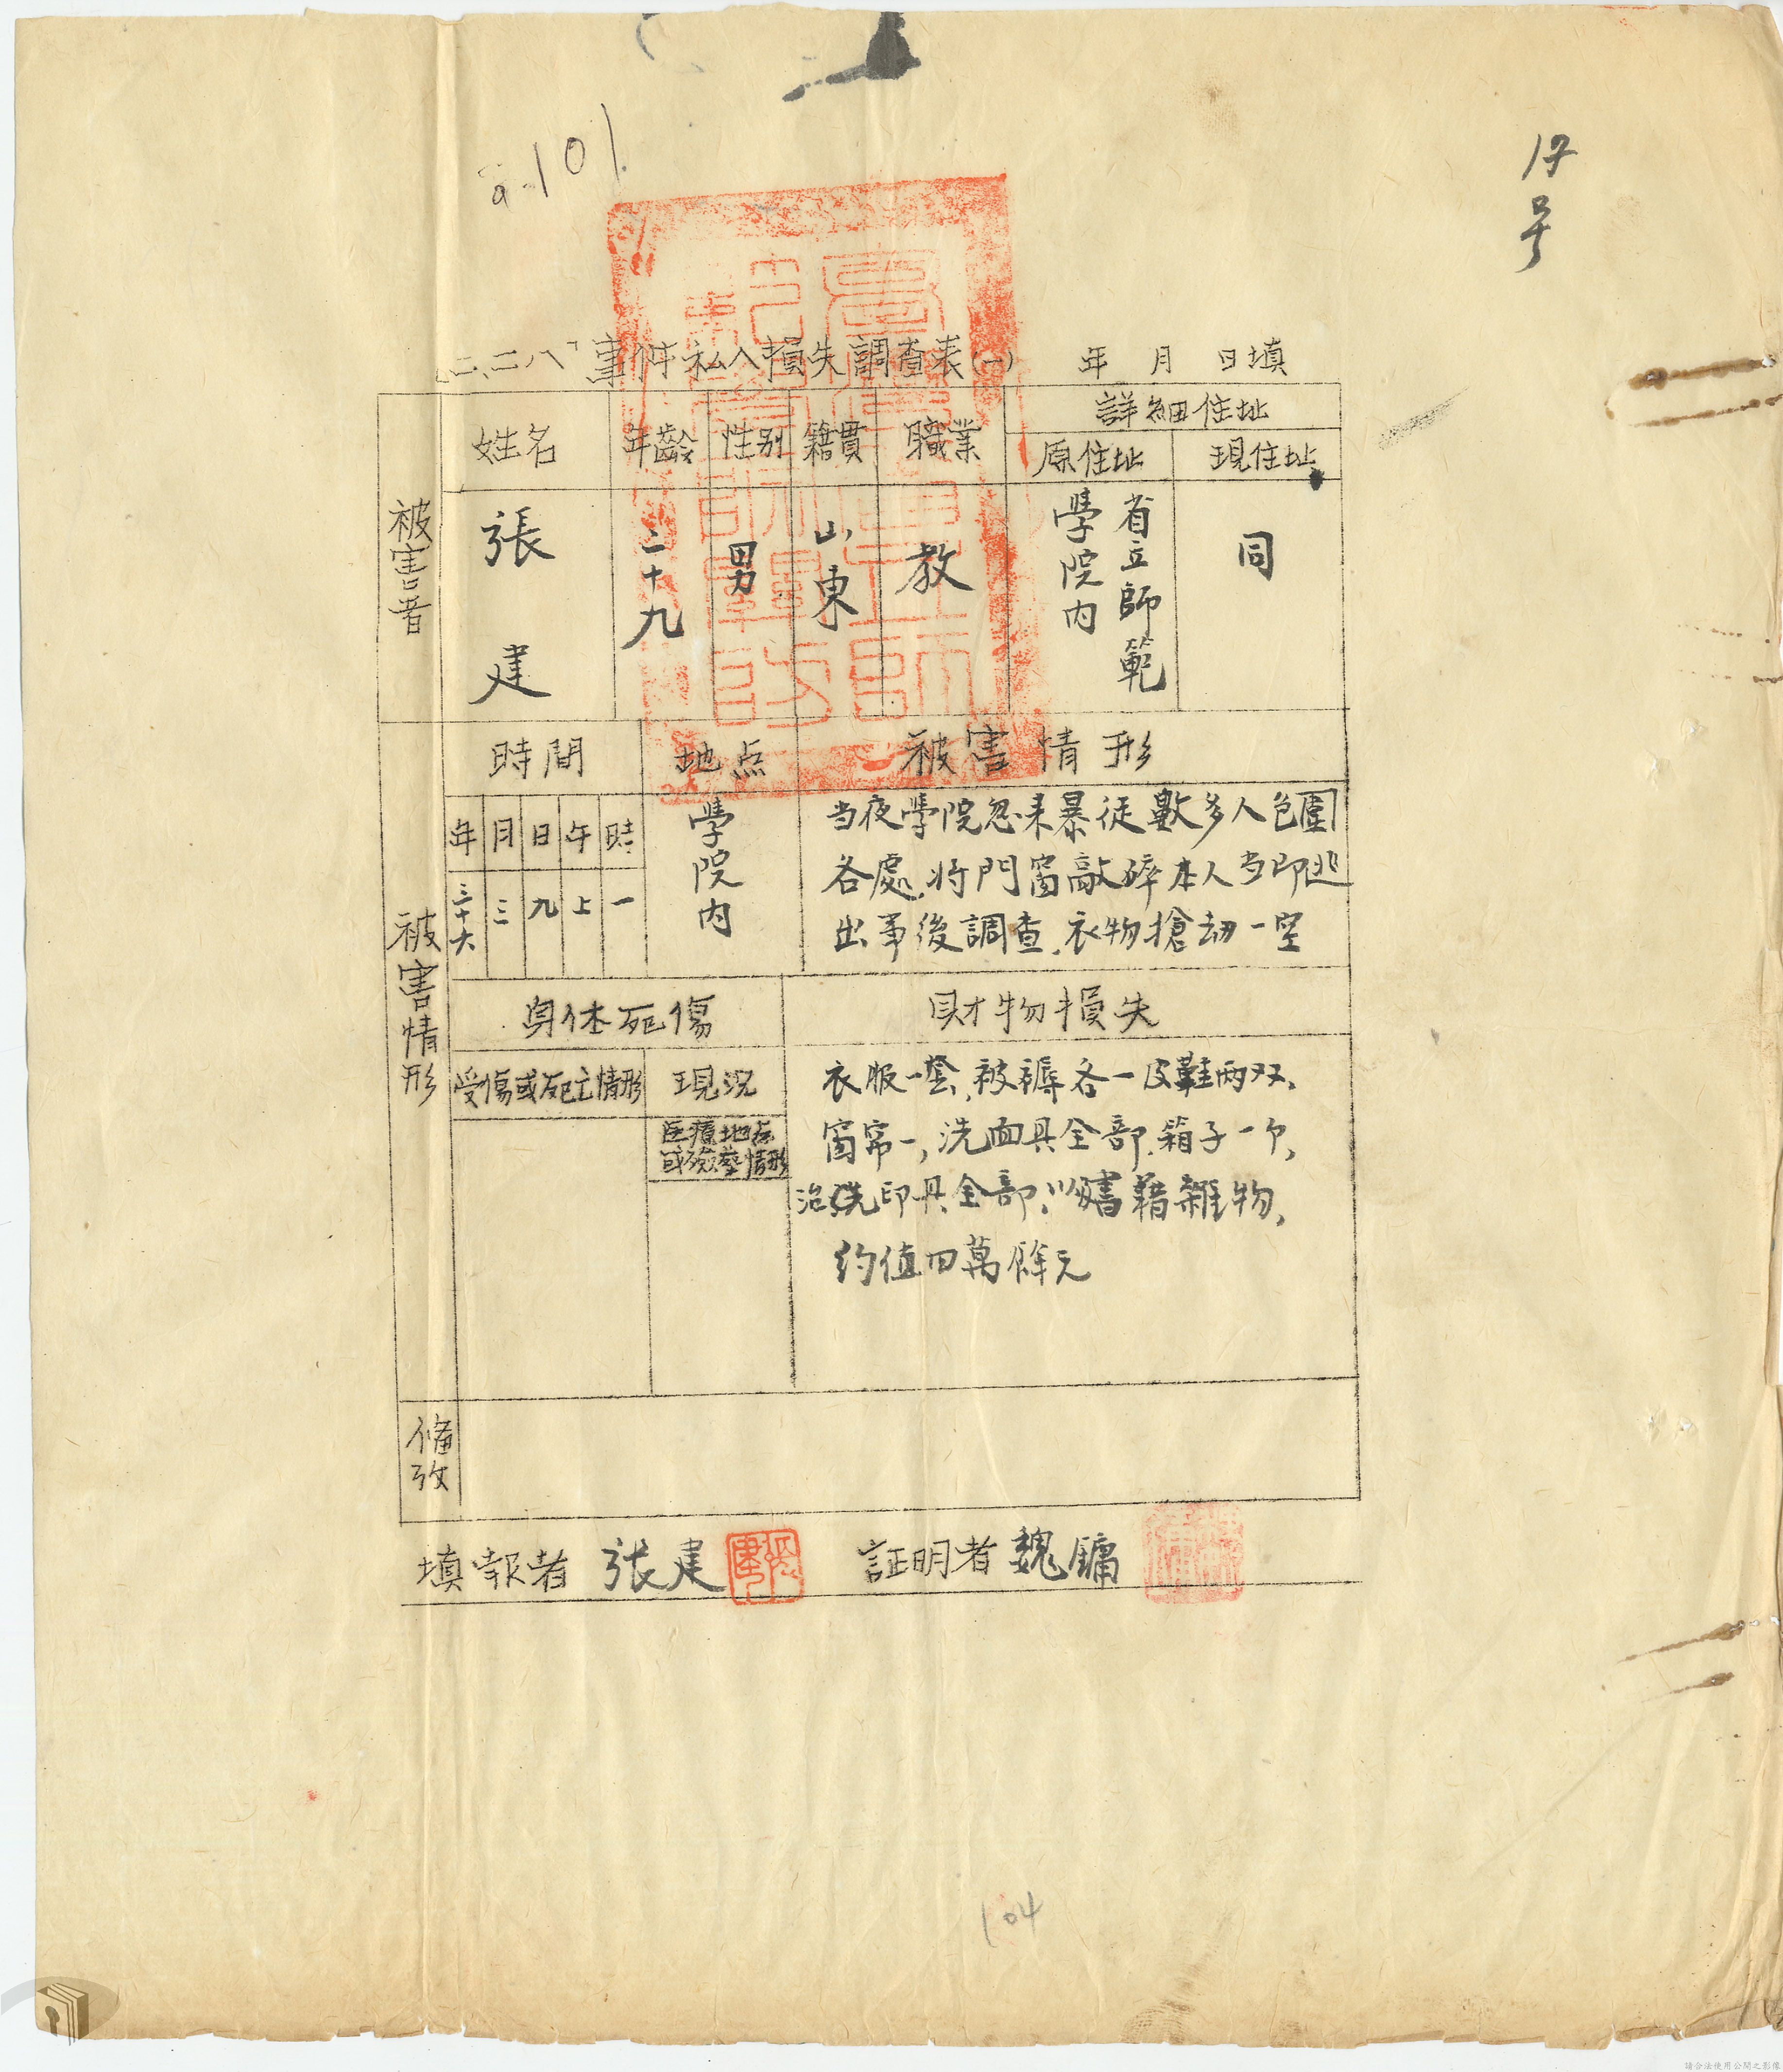 a-101
17号
「二、二八」事件私人損失調查表(一)　年　月　日填
被害者
姓名
年齡
性別
籍貫
職業
詳細住址
原住址
現住址
張建
二十九
男
山東
教
省立師範
學院內
同
被害情形
時間
地点
被害情形
年
月
日
午
時
三十六
三
九
上
一
學院內
当夜學院忽来暴徒數多人包圍
各處,将門窗敲碎本人当即逃
出事後調查,衣物搶劫一空
身体死傷
財物損失
受傷或死亡情形
現況
医療地点
或殮塟情形
衣服一套,被褥各一皮鞋两双,
窗帘一,洗面具全部,箱子一个,
洗印具全部,書籍雜物,
約值四萬餘元
備攷
填報者 張建
証明者 魏鏞
104
請合法使用公開之影像